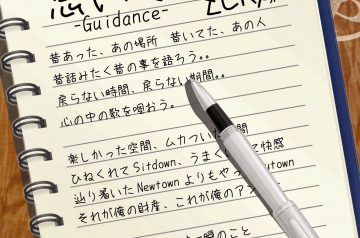 -Guidance-
昔あった、あの場所 昔いてた、あの人
昔話みたく昔の事を語ろう。。
戻らない時間、戻らない期間。。
心の中の歌を唄おう。
楽しかった空間、ムカつい
ひねくれてSitdown、うまく て快感
辿り着いたNewtownよりもや town
それが俺の財産、これが俺のア
瞬のこと